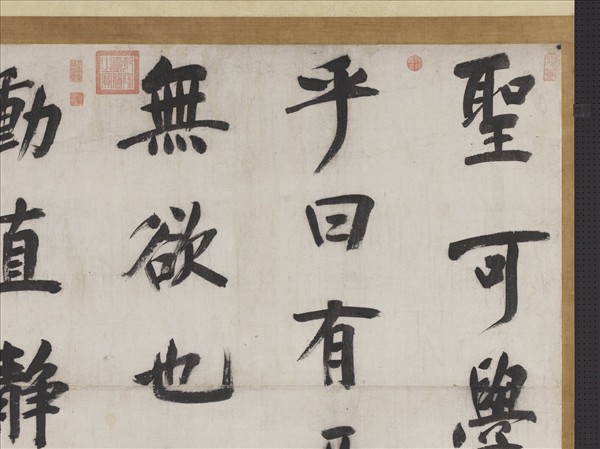 聖可學
乎曰有
無欲也
動直静